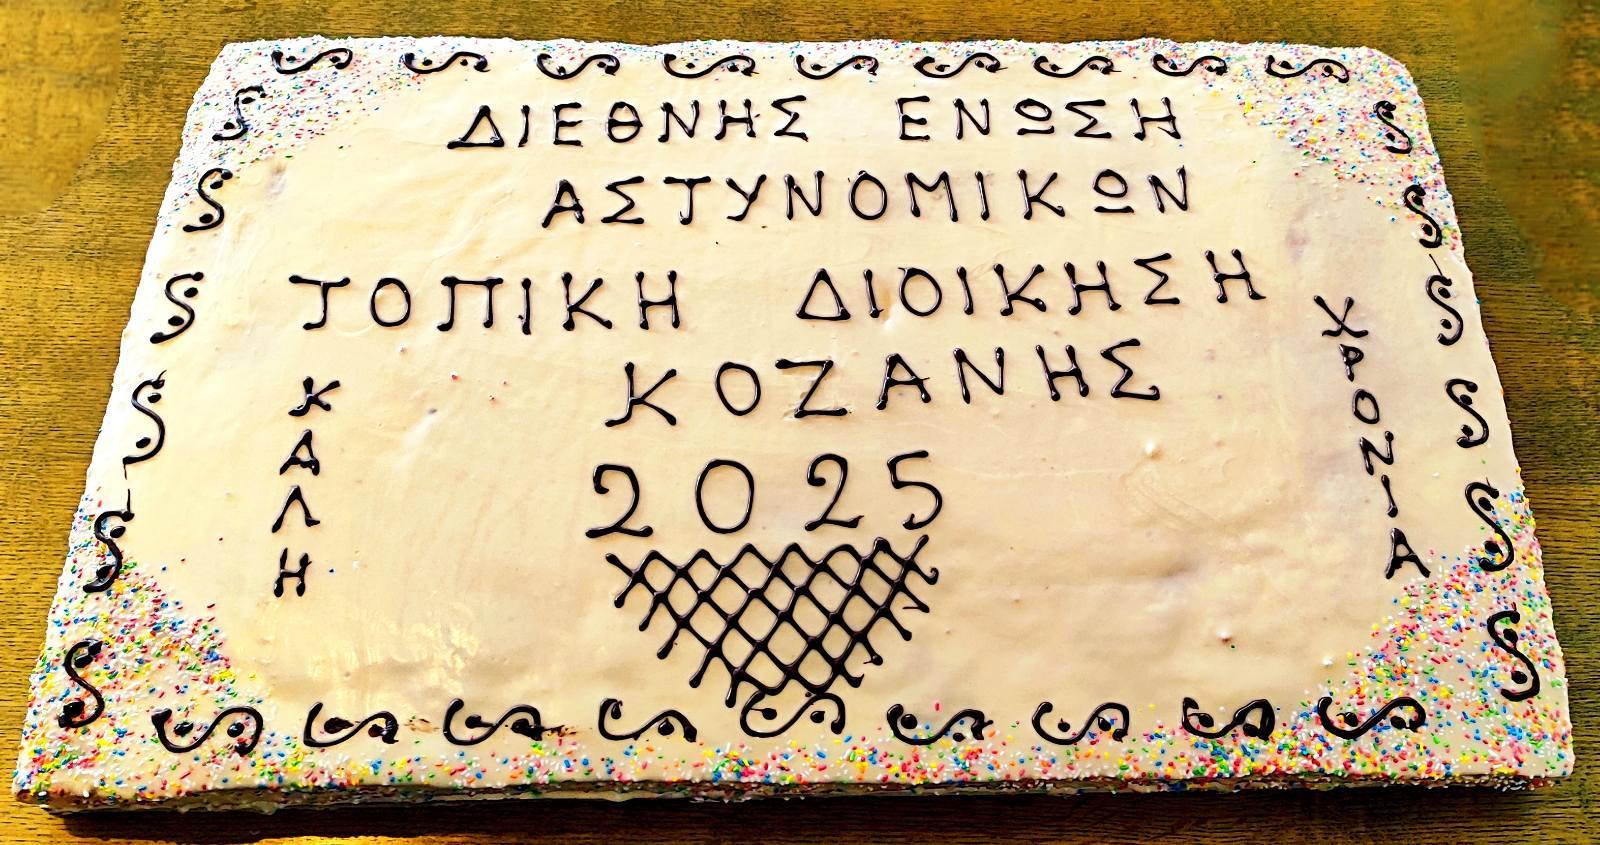 ΔΙΕΘΝΗΣ ΕΝΩΣΗ
ΑΣΤΥΝΟΜΙΚΩΝ
ΤΟΠΙΚΗ ΔΙΟΙΚΗΣΗ
ΚΟΖΑΝΗΣ
2025
ΚΑΛΗ
ΧΡΟΝΙΑ